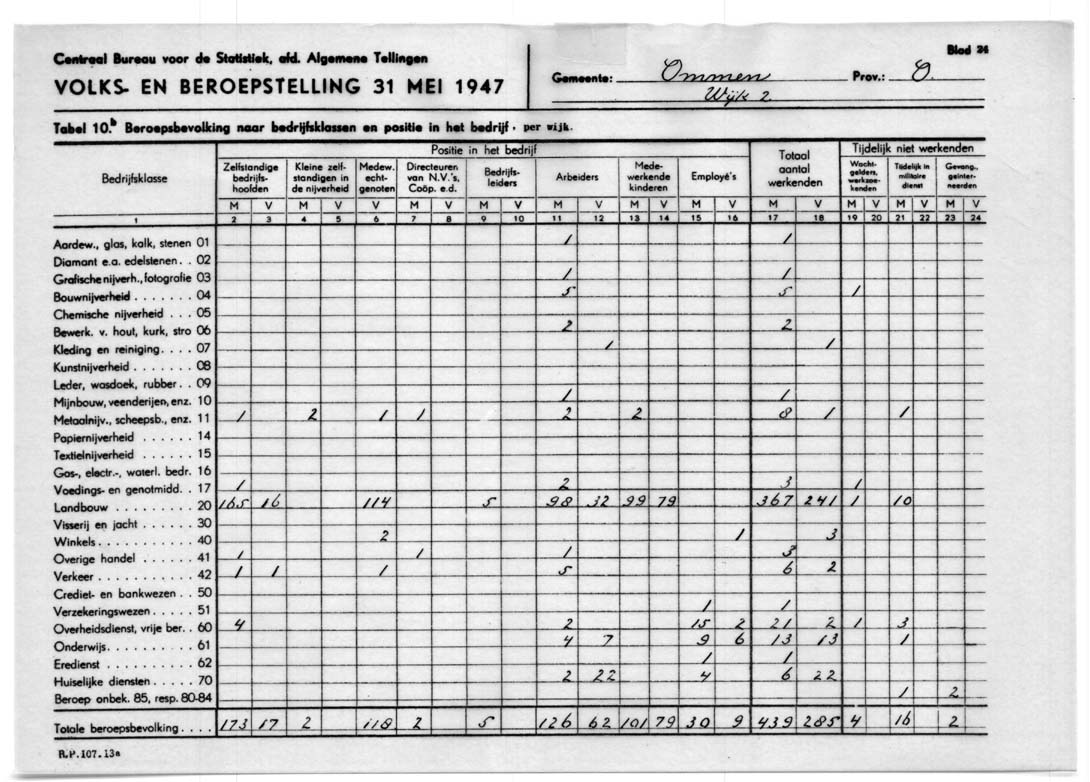 Centraal Bureau voor de Statistiek, afd. Algemene Tellingen
VOLKS- EN BEROEPSTELLING 31 MEI 1947
Gemeente: Ommen Prov.: O.
Wijk 2
Blad 24
Tabel 10.b Beroepsbevolking naar bedrijfsklassen en positie in het bedrijf, per wijk.
Bedrijfsklasse
Positie in het bedrijf
Zelfstandige bedrijfs-hoofden
Kleine zelf-standigen in de nijverheid
Medew. echt-genoten
Directeuren van N.V.'s, Coöp. e.d.
Bedrijfs-leiders
Arbeiders
Mede-werkende kinderen
Employé's
Totaal aantal werkenden
Tijdelijk niet werkenden
Wacht-gelders, werkzoe-kenden
Tijdelijk in militaire dienst
Gevang., geinter-neerden
M V M V V M V M V M V M V M V M V M V M V M V
1 2 3 4 5 6 7 8 9 10 11 12 13 14 15 16 17 18 19 20 21 22 23 24
Aardew., glas, kalk, stenen 01 1 1
Diamant e.a. edelstenen. . 02
Grafische nijverh., fotografie 03 1 1
Bouwnijverheid . . . . . . . 04 5 5 1
Chemische nijverheid . . . 05
Bewerk. v. hout, kurk, stro 06 2 2
Kleding en reiniging. . . . 07 1 1
Kunstnijverheid . . . . . . . 08
Leder, wasdoek, rubber. . 09
Mijnbouw, veenderijen, enz. 10 1 1
Metaalnijv., scheepsb., enz. 11 1 2 1 1 2 2 8 1 1
Papiernijverheid . . . . . . 14
Textielnijverheid . . . . . . 15
Gas-, electr.-, waterl. bedr. 16
Voedings- en genotmidd. . 17 1 2 3 1
Landbouw . . . . . . . . . 20 165 16 114 5 98 32 99 79 367 241 1 10
Visserij en jacht . . . . . . 30
Winkels . . . . . . . . . . . 40 2 1 3
Overige handel . . . . . . 41 1 1 1 3
Verkeer . . . . . . . . . . . 42 1 1 1 5 6 2
Crediet- en bankwezen . . 50
Verzekeringswezen . . . . . 51 1 1
Overheidsdienst, vrije ber. . 60 4 2 15 2 21 2 1 3
Onderwijs. . . . . . . . . . 61 4 7 9 6 13 13 1
Eredienst . . . . . . . . . . 62 1 1
Huiselijke diensten . . . . . 70 2 22 4 6 22
Beroep onbek. 85, resp. 80-84 1 2
Totale beroepsbevolking . . . . 173 17 2 118 2 5 126 62 101 79 30 9 439 285 4 16 2
R.P. 107.13a